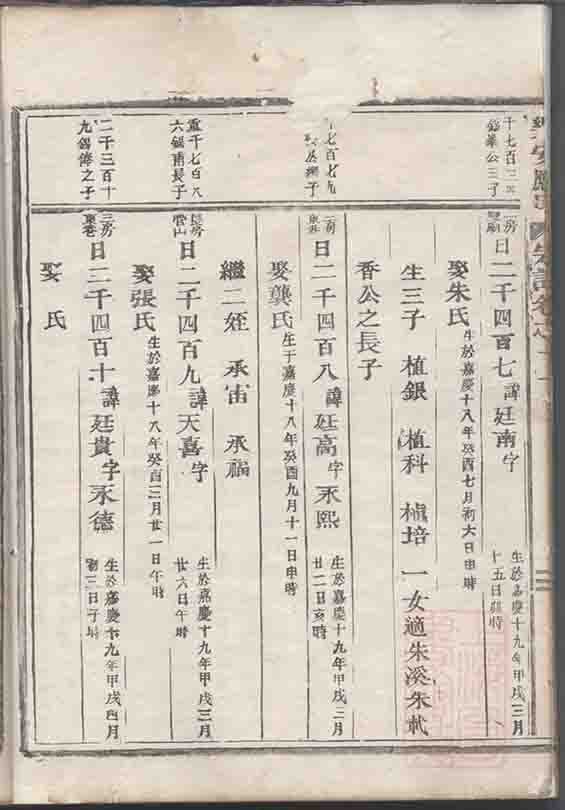 公三子
日二千四百七 諱廷南字
生於嘉慶十九年甲戌三月
十五日 時
娶朱氏 生於嘉慶十八年癸酉七月初六日申時
生三子 植銀 植科 植培 一女適朱溪朱
香公之長子
日二千四百八 諱廷高字永熙
生於嘉慶十九年甲戌三月
廿二日亥時
娶龔氏 生于嘉慶十八年癸酉九月十一日申時
繼二姪 承宙 承福
重千七百八
六錫甫長子
長房
管山
日二千四百九 諱天喜字
生於嘉慶十九年甲戌三月
廿六日午時
娶張氏 生於嘉慶十八年癸酉三月廿一日午時
二千三百十
九錫 之子
三房
東巷
日二千四百十 諱廷貴字永德
生於嘉慶十九年甲戌四月
初三日子時
娶 氏